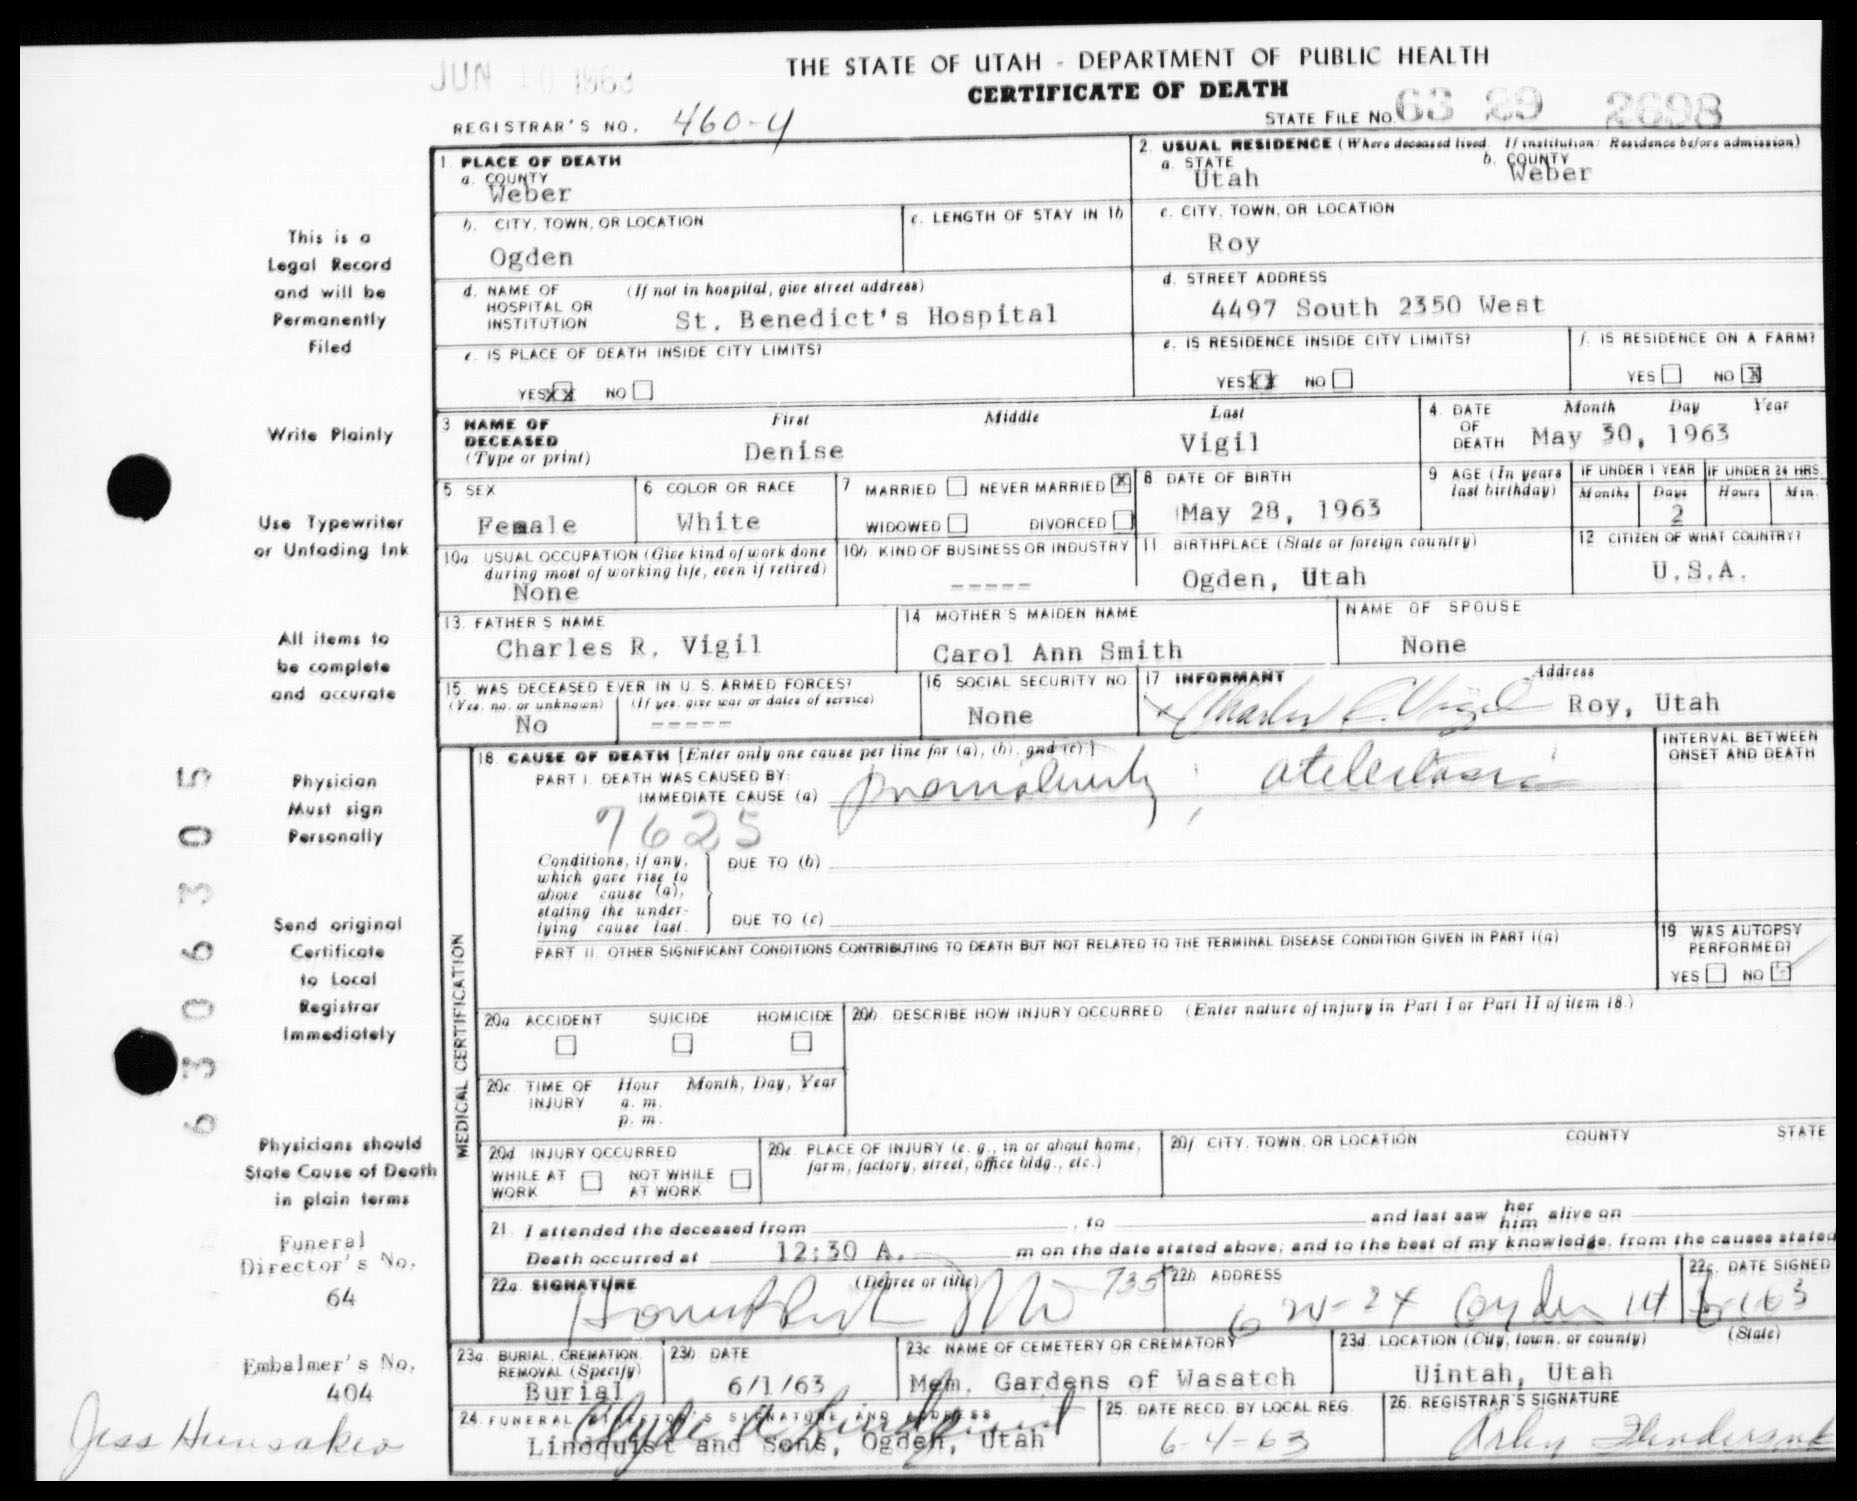 JUN 10 1963
THE STATE OF UTAH - DEPARTMENT OF PUBLIC HEALTH
CERTIFICATE OF DEATH
REGISTRAR'S NO. 460-4
STATE FILE NO. 63 29 2698
1. PLACE OF DEATH
a. COUNTY
Weber
2. USUAL RESIDENCE (Where deceased lived. If institution: Residence before admission)
a. STATE
Utah
b. COUNTY
Weber
b. CITY, TOWN, OR LOCATION
Ogden
c. LENGTH OF STAY IN 1b
c. CITY, TOWN, OR LOCATION
Roy
d. NAME OF HOSPITAL OR INSTITUTION (If not in hospital, give street address)
St. Benedict's Hospital
d. STREET ADDRESS
4497 South 2350 West
e. IS PLACE OF DEATH INSIDE CITY LIMITS?
YES XX NO
e. IS RESIDENCE INSIDE CITY LIMITS?
YES XX NO
f. IS RESIDENCE ON A FARM?
YES NO X
3 NAME OF DECEASED (Type or print)
First Middle Last
Denise Vigil
4. DATE OF DEATH
Month Day Year
May 30, 1963
5 SEX
Female
6 COLOR OR RACE
White
7 MARRIED NEVER MARRIED X
WIDOWED DIVORCED
8 DATE OF BIRTH
May 28, 1963
9 AGE (In years last birthday)
IF UNDER 1 YEAR
Months Days
2
IF UNDER 24 HRS
Hours Min.
10a USUAL OCCUPATION (Give kind of work done during most of working life, even if retired)
None
10b KIND OF BUSINESS OR INDUSTRY
-----
11. BIRTHPLACE (State or foreign country)
Ogden, Utah
12 CITIZEN OF WHAT COUNTRY?
U.S.A.
13. FATHER'S NAME
Charles R. Vigil
14 MOTHER'S MAIDEN NAME
Carol Ann Smith
NAME OF SPOUSE
None
15. WAS DECEASED EVER IN U. S. ARMED FORCES?
(Yes, no, or unknown) (If yes, give war or dates of service)
No -----
16 SOCIAL SECURITY NO.
None
17 INFORMANT Address
x Charles R. Vigil Roy, Utah
18 CAUSE OF DEATH [Enter only one cause per line for (a), (b), and (c).]
INTERVAL BETWEEN ONSET AND DEATH
PART I. DEATH WAS CAUSED BY:
IMMEDIATE CAUSE (a) prematurity; atelectasis
7625
Conditions, if any, which gave rise to above cause (a), stating the underlying cause last.
DUE TO (b)
DUE TO (c)
PART II OTHER SIGNIFICANT CONDITIONS CONTRIBUTING TO DEATH BUT NOT RELATED TO THE TERMINAL DISEASE CONDITION GIVEN IN PART I(a)
19. WAS AUTOPSY PERFORMED?
YES NO
MEDICAL CERTIFICATION
20a ACCIDENT SUICIDE HOMICIDE
20b DESCRIBE HOW INJURY OCCURRED (Enter nature of injury in Part I or Part II of item 18.)
20c TIME OF INJURY
Hour Month, Day, Year
a. m.
p. m.
20d INJURY OCCURRED
WHILE AT WORK NOT WHILE AT WORK
20e. PLACE OF INJURY (e. g., in or about home, farm, factory, street, office bldg., etc.)
20f CITY, TOWN, OR LOCATION COUNTY STATE
21. I attended the deceased from , to and last saw her him alive on
Death occurred at 12:30 A. m on the date stated above; and to the best of my knowledge, from the causes stated
22a SIGNATURE (Degree or title) 735
22b ADDRESS
Ogden
22c. DATE SIGNED
23a BURIAL, CREMATION, REMOVAL (Specify)
Burial
23b DATE
6/1/63
23c. NAME OF CEMETERY OR CREMATORY
Mem. Gardens of Wasatch
23d. LOCATION (City, town, or county) (State)
Uintah, Utah
24. FUNERAL DIRECTOR'S SIGNATURE AND ADDRESS
Clyde A Lindquist
Lindquist and Sons, Ogden, Utah
25. DATE RECD. BY LOCAL REG.
6-4-63
26. REGISTRAR'S SIGNATURE
This is a
Legal Record
and will be
Permanently
Filed
Write Plainly
Use Typewriter
or Unfading Ink
All items to
be complete
and accurate
Physician
Must sign
Personally
Send original
Certificate
to Local
Registrar
Immediately
Physicians should
State Cause of Death
in plain terms
Funeral
Director's No.
64
Embalmer's No.
404
Jess Hunsaker
6 3 0 6 3 0 5